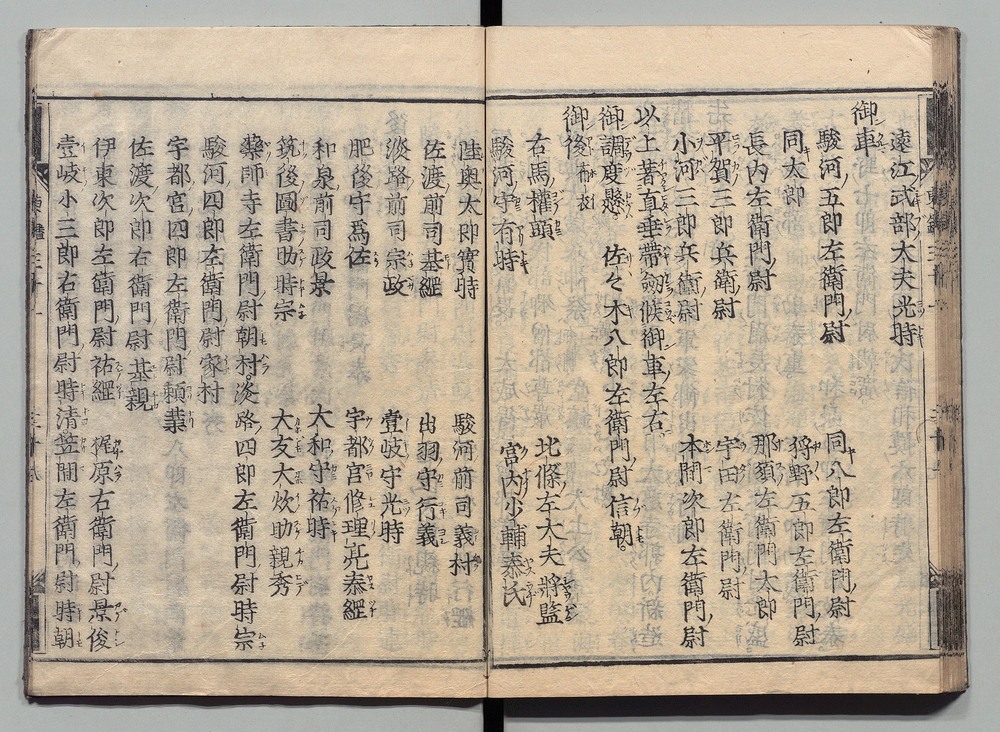 遠江式部大夫光時
御車
駿河五郎左衛門尉 同八郎左衛門尉
同太郎 狩野五郎左衛門尉
長内左衛門尉 那須左衛門太郎
平賀三郎兵衛尉 宇田左衛門尉
小河三郎兵衛尉 本間次郎左衛門尉
以上著直垂帯劔候御車左右
御調度懸 佐々木八郎左衛門尉信朝
御後
右馬權頭 北條左大夫將監
駿河守有時 宮内少輔泰氏
陸奥太郎實時 駿河前司義村
佐渡前司基綱 出羽守行義
淡路前司宗政 壹岐守光時
肥後守為佐 宇都宮修理亮泰綱
和泉前司政景 大和守祐時
筑後圖書助時宗 大友大炊助親秀
藥師寺左衛門尉朝村 淡路四郎左衛門尉時宗
駿河四郎左衛門尉家村
宇都宮四郎左衛門尉頼業
佐渡次郎右衛門尉基親
伊東次郎左衛門尉祐經 梶原右衛門尉景俊
壹岐小三郎右衛門尉時清 笠間左衛門尉時朝